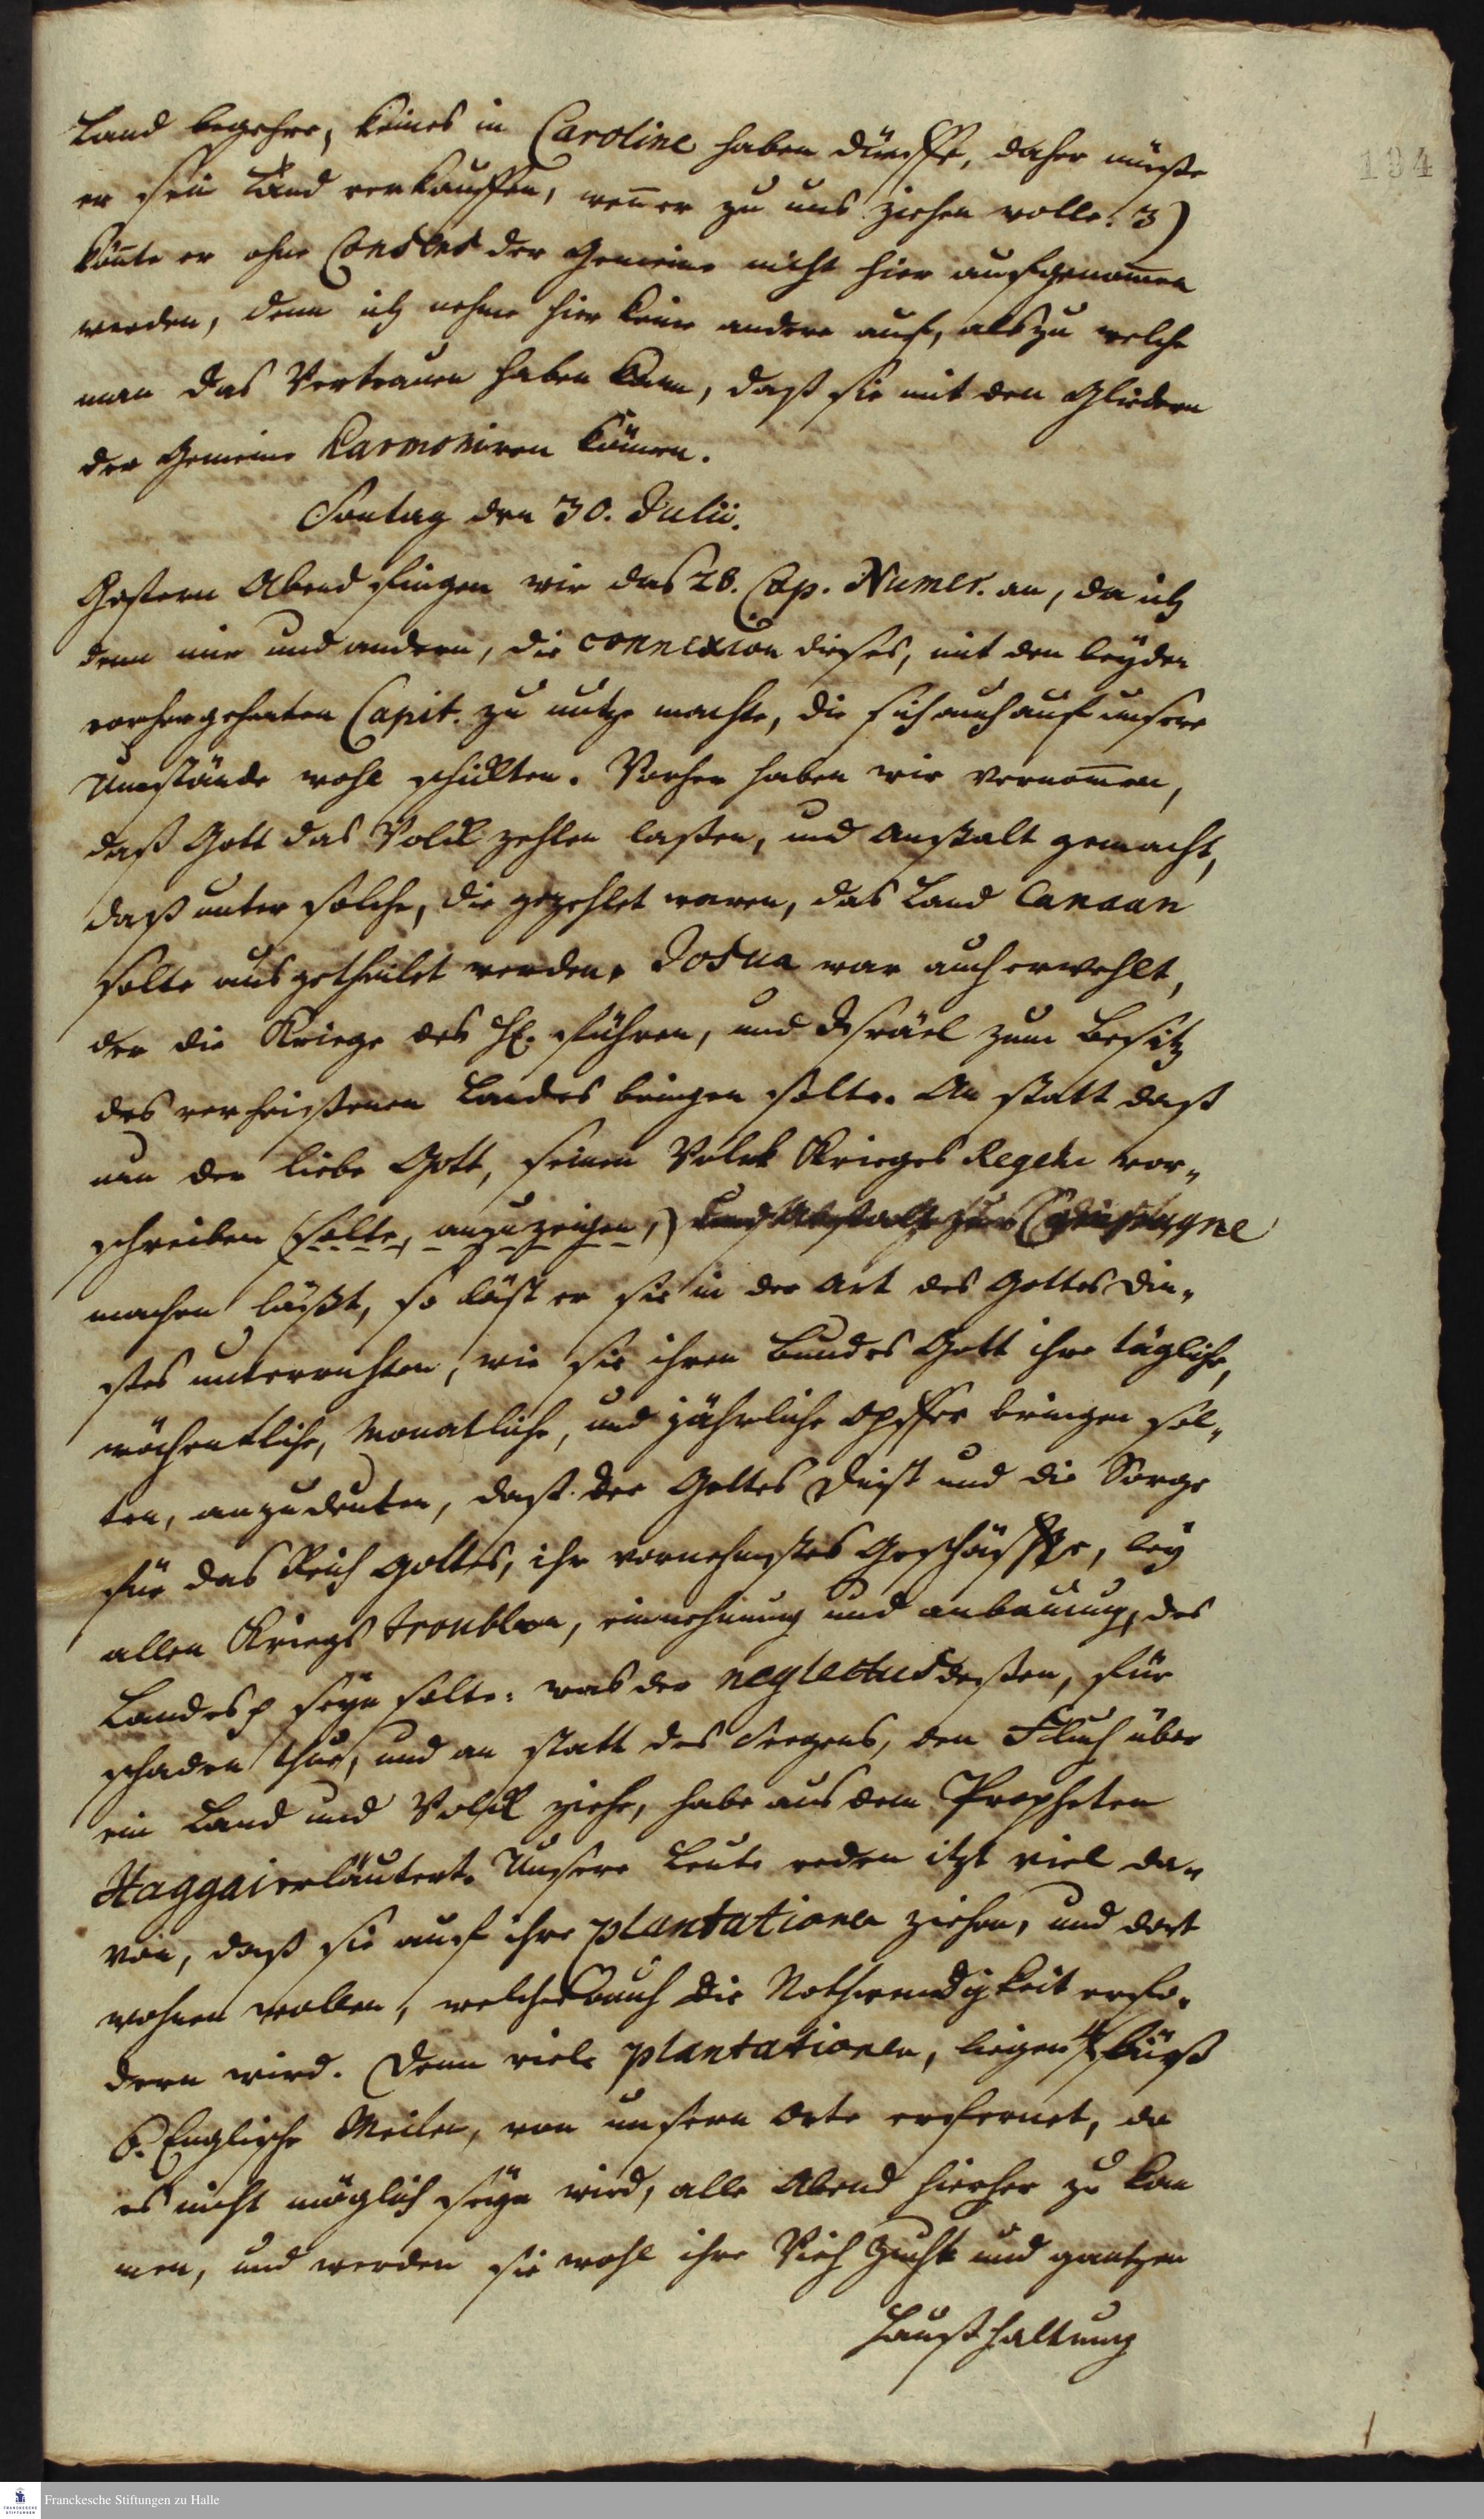 194
Land begehre, keines in Caroline haben dürffe, daher müßte
er sein Land verkauffen, wenn er zu uns ziehen wolle. 3)
könte er ohne Consens der Gemeine nicht hier aufgenommen
werden, denn ich nehme hier keine andere auf, als zu welche
man das Vertrauen haben kann, daß sie mit den Gliedern
der Gemeine harmoniren können.
Sontag den 30. Julii.
Gestern Abend fingen wir das 28. Cap. Numer. an, da ich
denn mir und andern, die connexion dieses, mit den beyden
vorhergehenden Capit. zu nutze machte, die sich auch auf unsere
Umstände wohl schickten. Vorher haben wir vernommen,
daß Gott das Volck zehlen laßen, und Anstalt gemacht,
daß unter solche, die gezehlet waren, das Land Canaan
solte ausgetheilet werden. Josua war auch erwehlt,
der die Kriege des HE. führen, und Israel zum Besitz
des verheißenen Landes bringen solte. An statt daß
nun der liebe Gott, seinen Volck Krieges Regeln vor„
schreiben (solte, anzuzeigen,) und Anstalt zur Campagne
machen läßt, so läst er sie in der Art des Gottes Din„
stes unterrichten, wie sie ihren Bundes Gott ihre tägliche,
wöchentliche, Monatliche, und jährliche Opffer bringen sol„
ten, anzudeuten, daß der Gottes Dinst und die Sorge
für das Reich Gottes, ihr vornehmstes Geschäffte, bey
allen Kriegs troublen, einnehmung und anbauung, des
Landes seyn solte: was der neglectus deßen, für
schaden thue, und an statt des Seegens, den Fluch über
ein Land und Volck ziehe, habe aus dem Propheten
Haggai erläutert. Unsere Leute reden itzt viel da„
von, daß sie auf ihre plantationen ziehen, und dort
wohnen wollen, welches auch die Nothwendigkeit erfo„
dern wird. Denn viele plantationen, liegen
6. Englische Meilen, von unsern Orte entfernet, da
es nicht möglich seyn wird, alle Abend hierher zu kom
men, und werden sie wohl ihre Vieh Zucht und gantzen
Haußhaltung
Franckesche Stiftungen zu Halle